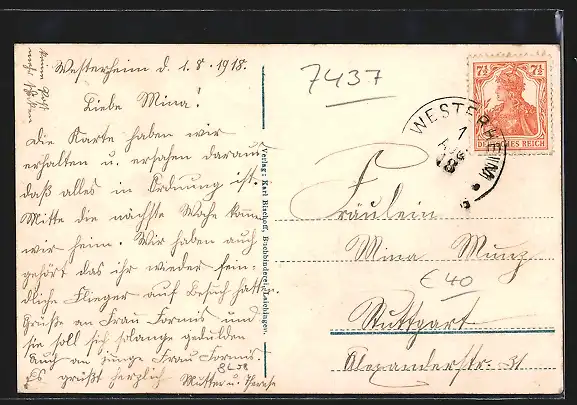 Westerheim d. 1.8.1918.
Liebe Mina!
Die Karte haben wir
erhalten u. ersahen daraus
daß alles in Ordnung ist.
Mitte die nächste Woche kom̄
wir heim. Wir haben auch
gehört das ihr wieder fein
dliche Flieger auf Besuch hattet
Grüße an Frau Formis und
sie soll sich solange gedulden
Auch an junge Frau Formis.
Es grüßt herzlich
Mutter u. Therese
Verlag: Karl Bischoff, Buchbinderei, Laichingen.
7437
7½ 7½
DEUTSCHES REICH
WESTERHEIM
1
AUG
18
Fräulein
Mina Munz
€ 40
Stuttgart
Alexanderstr. 31